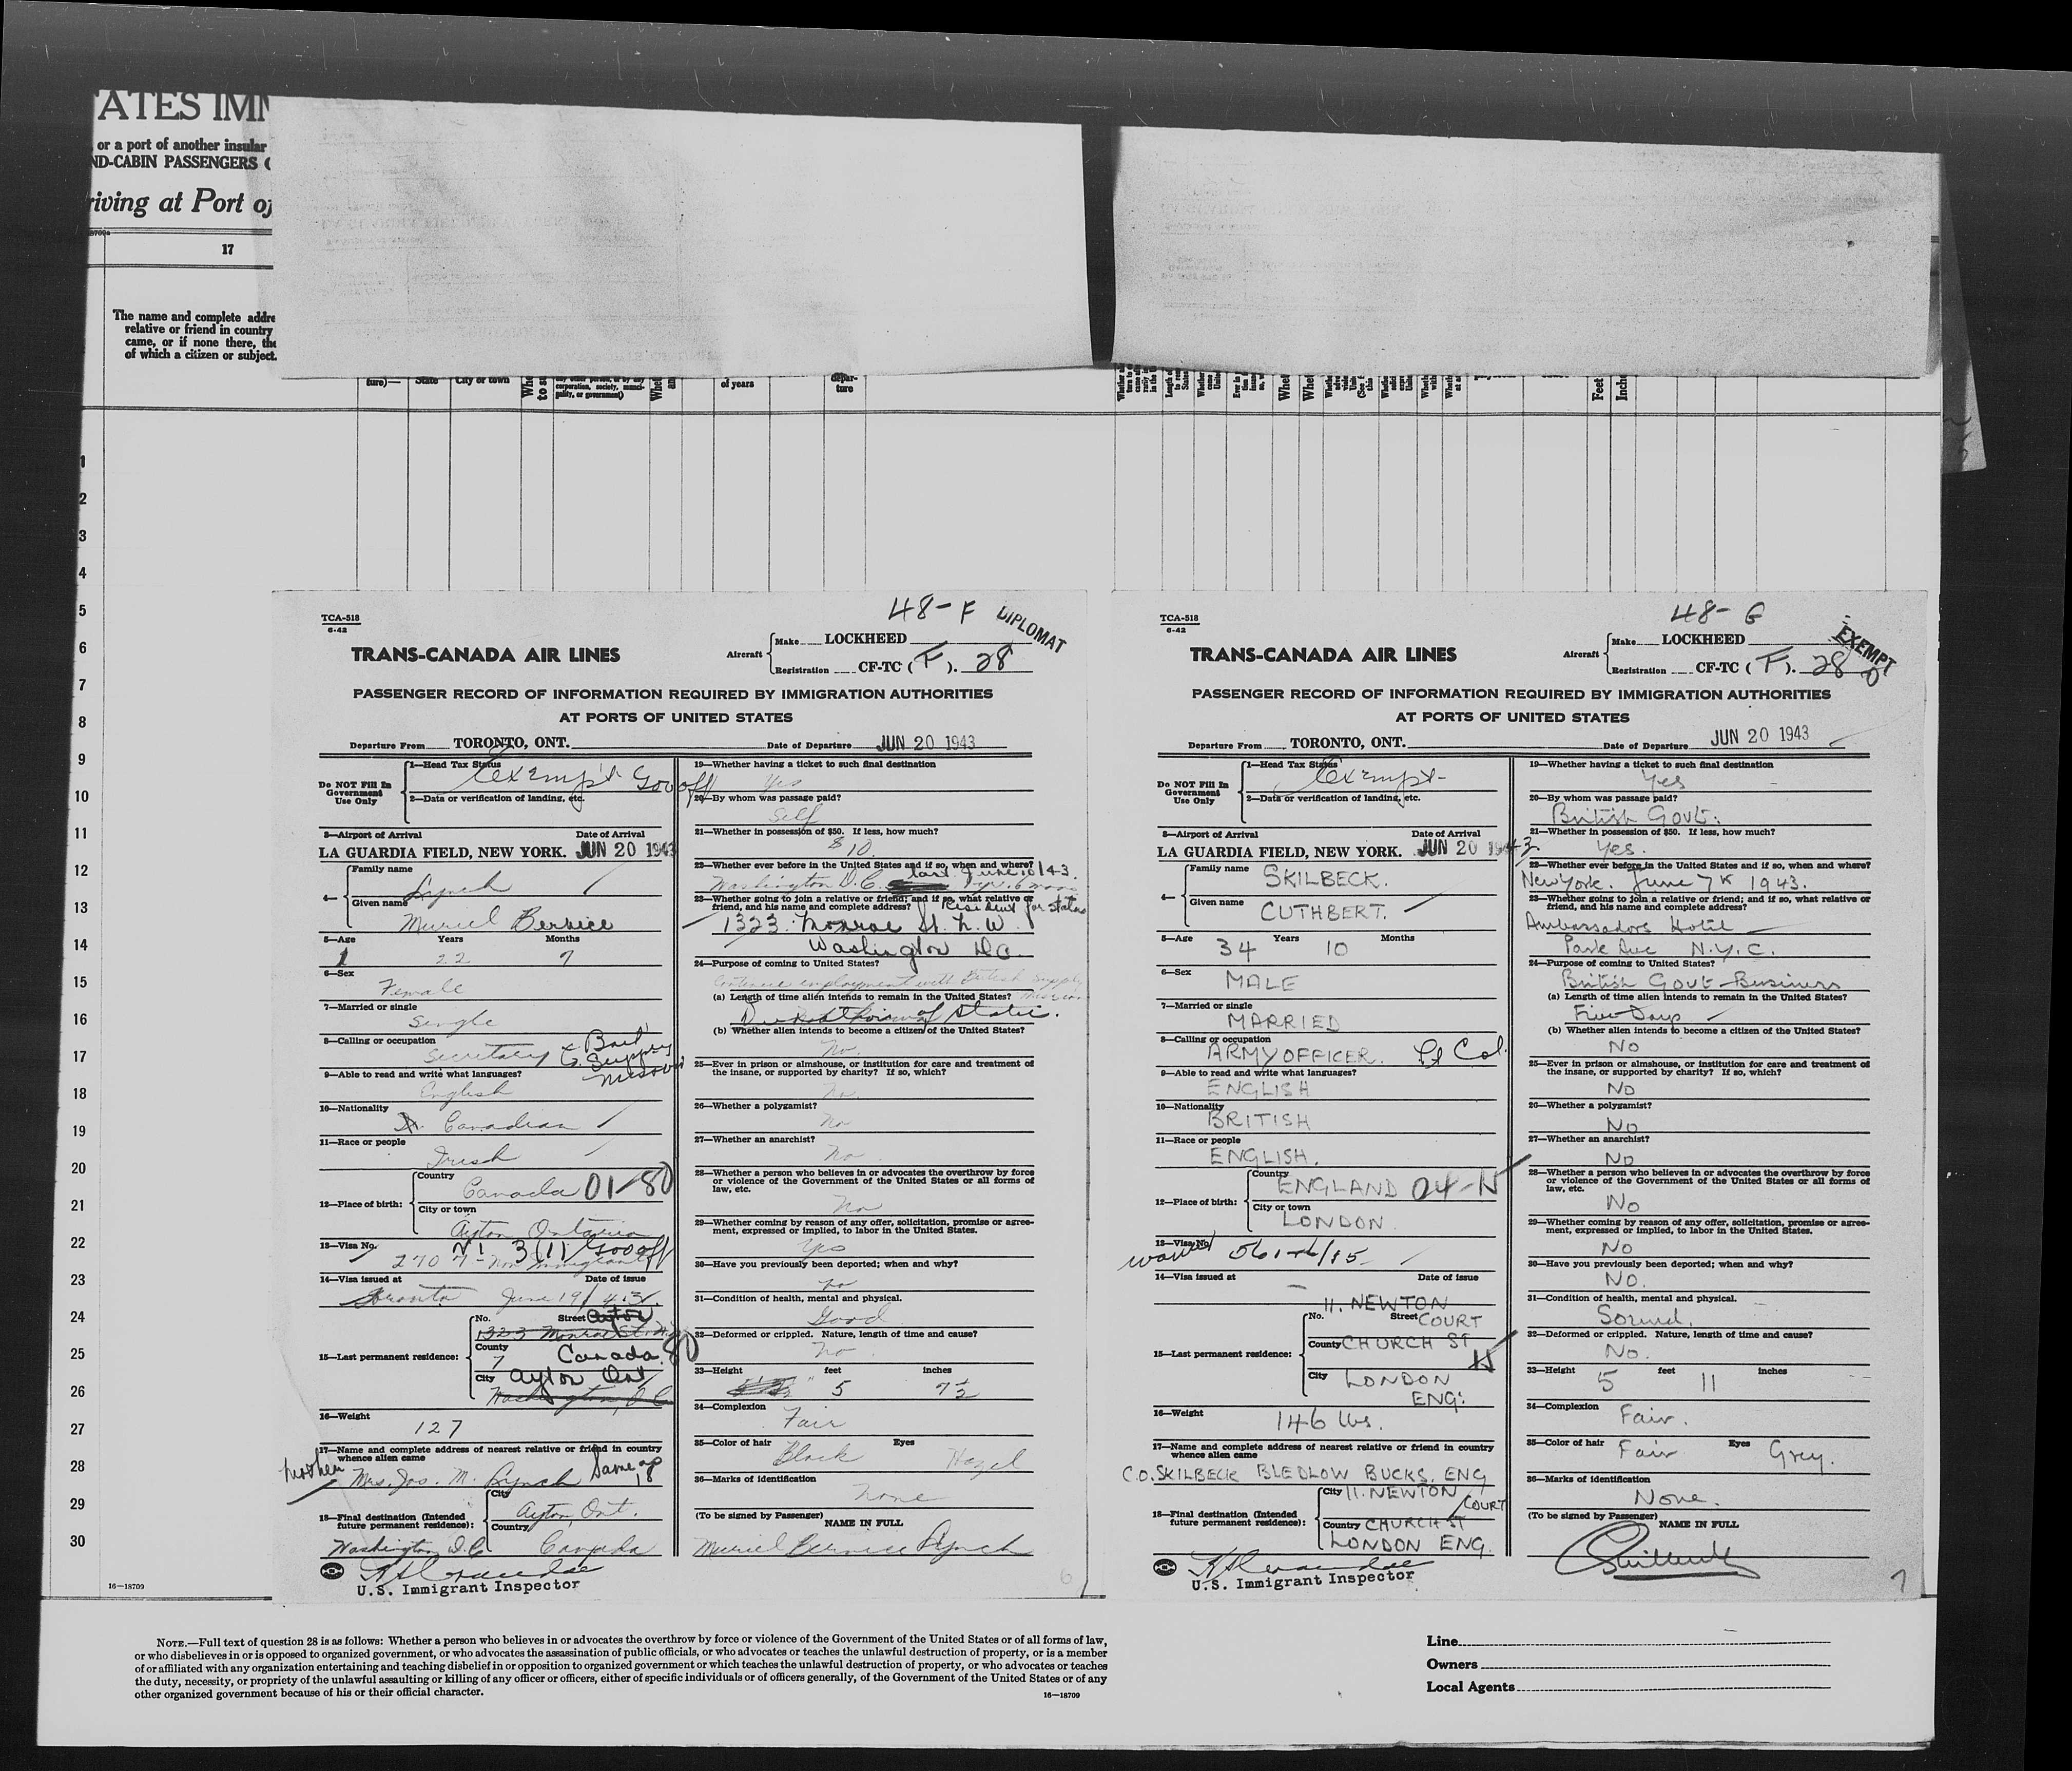 ATES IMM
or a port of another insular
ND-CABIN PASSENGERS
riving at Port of
17
The name and complete addre
relative or friend in country
came, or if none there, the
of which a citizen or subject.
ture)—
State
City or town
of years
depar-
ture
Feet
1
2
3
4
5
6
7
8
9
10
11
12
13
14
15
16
17
18
19
20
21
22
23
24
25
26
27
28
29
30
16—18709
TCA-518
6-42
48-F DIPLOMAT
TRANS-CANADA AIR LINES
Aircraft
Make LOCKHEED
Registration CF-TC (F). 28
PASSENGER RECORD OF INFORMATION REQUIRED BY IMMIGRATION AUTHORITIES
AT PORTS OF UNITED STATES
Departure From TORONTO, ONT. Date of Departure JUN 20 1943
Do NOT Fill In
Government
Use Only
1—Head Tax Status
exempt Gov off
2—Data or verification of landing, etc.
3—Airport of Arrival Date of Arrival
LA GUARDIA FIELD, NEW YORK. JUN 20 1943
4—
Family name
Lynch
Given name
Muriel Bernice
5—Age Years Months
22 7
6—Sex
Female
7—Married or single
Single
8—Calling or occupation
Secretary
Supply
Mission
9—Able to read and write what languages?
English
10—Nationality
Canadian
11—Race or people
Irish
12—Place of birth:
Country
Canada 01-80
City or town
Ayton Ontario
13—Visa No.
270 3/11 Gov off
14—Visa issued at Date of issue
Toronto June 19/43.
15—Last permanent residence:
No. Street Ayton
1323 Monroe St. N.W.
County
Canada 80
City Ayton Ont
Washington, D.C.
16—Weight
127
17—Name and complete address of nearest relative or friend in country
whence alien came
mother Mrs. Jos. M. Lynch Same as 18
18—Final destination (Intended
future permanent residence):
City
Ayton, Ont.
Country
Washington D.C. Canada
U.S. Immigrant Inspector
19—Whether having a ticket to such final destination
Yes
20—By whom was passage paid?
Self
21—Whether in possession of $50. If less, how much?
$10.
22—Whether ever before in the United States and if so, when and where?
Washington D.C. last June 10/43.
23—Whether going to join a relative or friend; and if so, what relative or
friend, and his name and complete address?
1323 Monroe St. N.W.
Washington DC.
24—Purpose of coming to United States?
Continue employment with British Supply Mission
(a) Length of time alien intends to remain in the United States?
Duration of Status.
(b) Whether alien intends to become a citizen of the United States?
No.
25—Ever in prison or almshouse, or institution for care and treatment of
the insane, or supported by charity? If so, which?
No
26—Whether a polygamist?
No
27—Whether an anarchist?
No
28—Whether a person who believes in or advocates the overthrow by force
or violence of the Government of the United States or all forms of
law, etc.
No
29—Whether coming by reason of any offer, solicitation, promise or agree-
ment, expressed or implied, to labor in the United States.
Yes
30—Have you previously been deported; when and why?
No
31—Condition of health, mental and physical.
Good
32—Deformed or crippled. Nature, length of time and cause?
No
33—Height feet inches
5 7½
34—Complexion
Fair
35—Color of hair Eyes
Black Hazel
36—Marks of identification
None
(To be signed by Passenger)
NAME IN FULL
Muriel Bernice Lynch
6
TCA-518
6-42
48-G
EXEMPT
TRANS-CANADA AIR LINES
Aircraft
Make LOCKHEED
Registration CF-TC (F). 28
PASSENGER RECORD OF INFORMATION REQUIRED BY IMMIGRATION AUTHORITIES
AT PORTS OF UNITED STATES
Departure From TORONTO, ONT. Date of Departure JUN 20 1943
Do NOT Fill In
Government
Use Only
1—Head Tax Status
Exempt
2—Data or verification of landing, etc.
3—Airport of Arrival Date of Arrival
LA GUARDIA FIELD, NEW YORK. JUN 20 1943
4—
Family name
SKILBECK.
Given name
CUTHBERT.
5—Age Years Months
34 10
6—Sex
MALE
7—Married or single
MARRIED
8—Calling or occupation
ARMY OFFICER. Lt Col.
9—Able to read and write what languages?
ENGLISH
10—Nationality
BRITISH
11—Race or people
ENGLISH.
12—Place of birth:
Country
ENGLAND 04-N
City or town
LONDON
13—Visa No.
14—Visa issued at Date of issue
15—Last permanent residence:
11. NEWTON
No. Street COURT
County CHURCH ST
City LONDON
ENG:
16—Weight
146 lbs.
17—Name and complete address of nearest relative or friend in country
whence alien came
C.O. SKILBECK BLEDLOW BUCKS. ENG
18—Final destination (Intended
future permanent residence):
City 11. NEWTON COURT
Country CHURCH ST
LONDON ENG.
U.S. Immigrant Inspector
19—Whether having a ticket to such final destination
Yes
20—By whom was passage paid?
British Govt.
21—Whether in possession of $50. If less, how much?
Yes.
22—Whether ever before in the United States and if so, when and where?
New York. June 7th 1943.
23—Whether going to join a relative or friend; and if so, what relative or
friend, and his name and complete address?
Ambassadors Hotel
Park Ave N.Y.C.
24—Purpose of coming to United States?
British Govt Business
(a) Length of time alien intends to remain in the United States?
Five Days
(b) Whether alien intends to become a citizen of the United States?
No
25—Ever in prison or almshouse, or institution for care and treatment of
the insane, or supported by charity? If so, which?
No
26—Whether a polygamist?
No
27—Whether an anarchist?
No
28—Whether a person who believes in or advocates the overthrow by force
or violence of the Government of the United States or all forms of
law, etc.
No
29—Whether coming by reason of any offer, solicitation, promise or agree-
ment, expressed or implied, to labor in the United States.
No
30—Have you previously been deported; when and why?
No.
31—Condition of health, mental and physical.
Sound.
32—Deformed or crippled. Nature, length of time and cause?
No.
33—Height feet inches
5 11
34—Complexion
Fair.
35—Color of hair Eyes
Fair Grey.
36—Marks of identification
None.
(To be signed by Passenger)
NAME IN FULL
7
NOTE.—Full text of question 28 is as follows: Whether a person who believes in or advocates the overthrow by force or violence of the Government of the United States or of all forms of law,
or who disbelieves in or is opposed to organized government, or who advocates the assassination of public officials, or who advocates or teaches the unlawful destruction of property, or is a member
of or affiliated with any organization entertaining and teaching disbelief in or opposition to organized government or which teaches the unlawful destruction of property, or who advocates or teaches
the duty, necessity, or propriety of the unlawful assaulting or killing of any officer or officers, either of specific individuals or of officers generally, of the Government of the United States or of any
other organized government because of his or their official character.
16—18709
Line
Owners
Local Agents